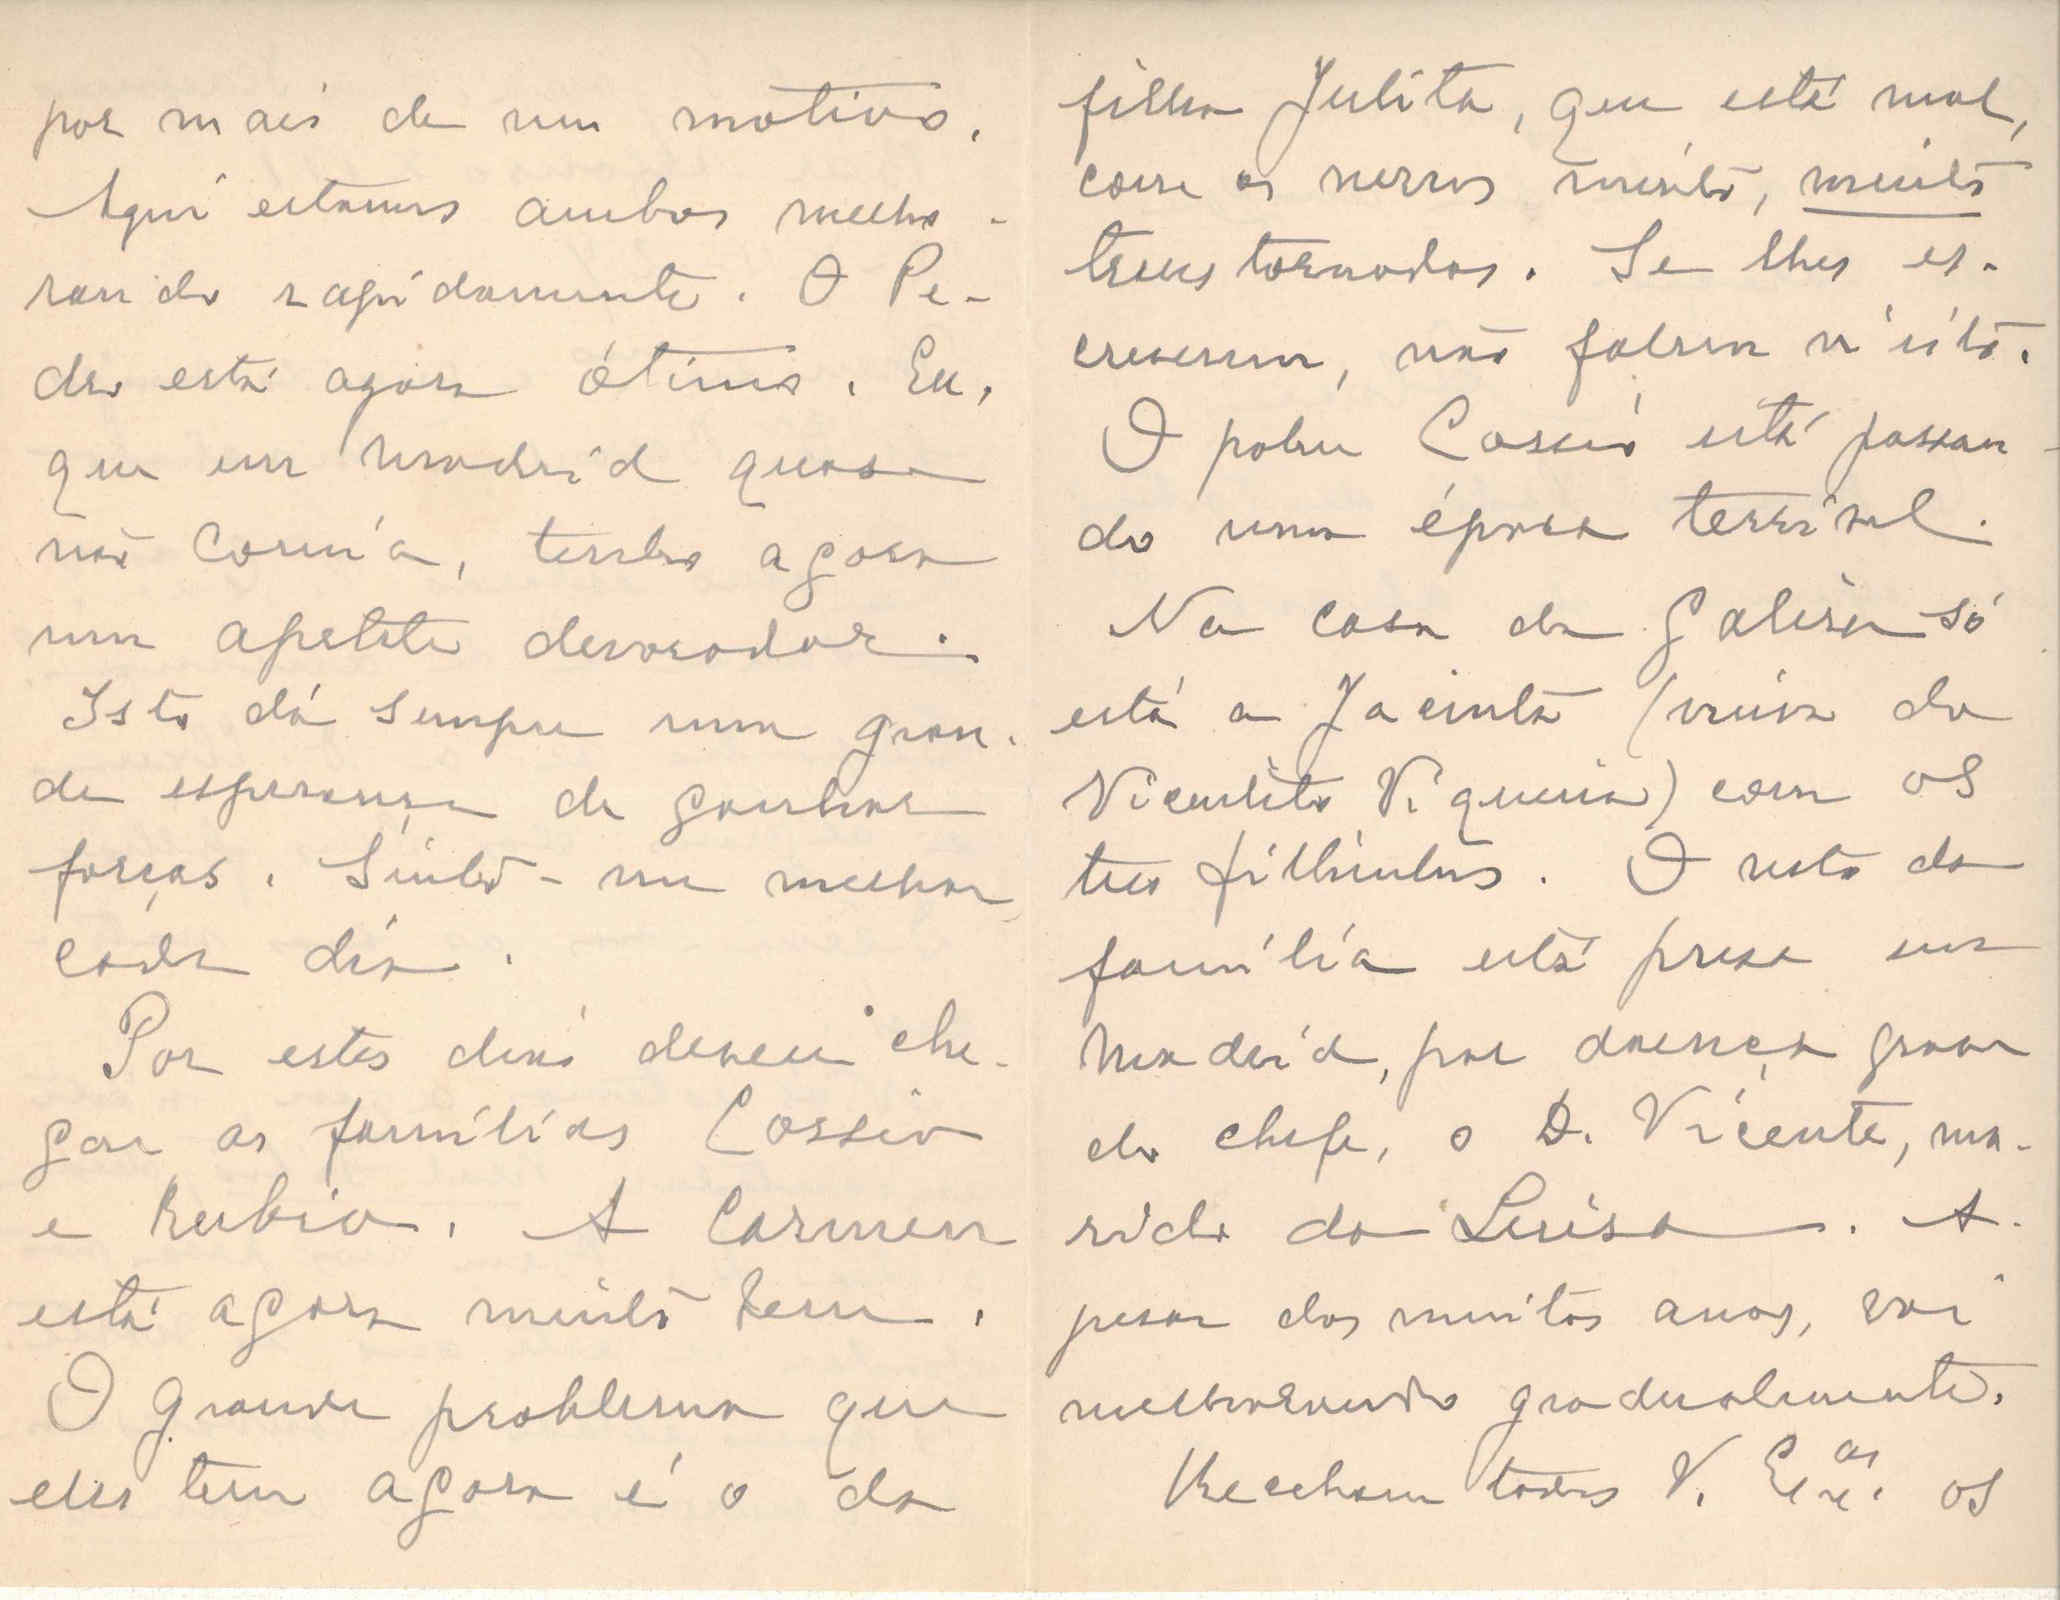 por mais de um motivo.
Aquí estamos ambos melho-
rando rapídamente. O Pe-
dro está agora ótimo. Eu,
que em Madrid quase
não comía, tenho agora
um apetite devorador.
Isto dá sempre uma gran-
de esperança de ganhar
forças. Sinto-me melhor
cada día.
Por estes dias devem che-
gar as famílias Cossío
e Rubio. A Carmen
está agora muito bem.
O grande problema que
eles tem agora é o da
filha Julita, que está mal,
com os nervos muito, muito
trenstornados. Se lhes es-
creverem, não falem n'isto.
O pobre Cossío está passan-
do uma época terrível.
Na casa da Galiza só
está a Jacinta (viúva do
Vicentito Viqueira) com os
tres filhinhos. O resto da
família está presa em
Madrid, por doença grave
do chefe, o D. Vicente, ma-
rido da Luísa. A-
pesar dos muitos anos, vai
melhorando gradualmente.
Recebam todos V. Ex.as os